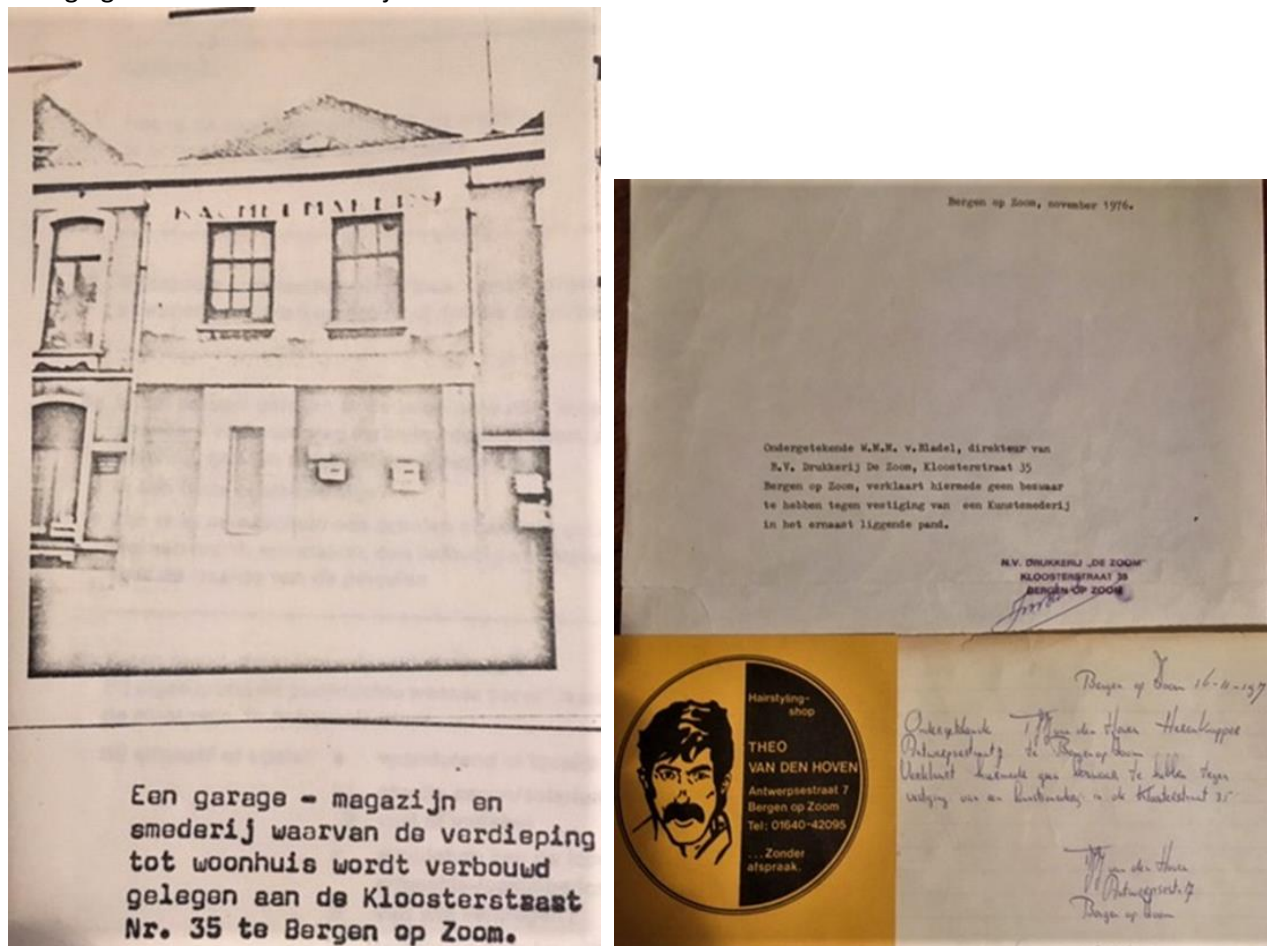 KACHELMAKERIJ
Een garage - magazijn en
smederij waarvan de verdieping
tot woonhuis wordt verbouwd
gelegen aan de Kloosterstraat
Nr. 35 te Bergen op Zoom.
Bergen op Zoom, november 1976.
Ondergetekende W.M.M. v.Bladel, direkteur van
B.V. Drukkerij De Zoom, Kloosterstraat 35
Bergen op Zoom, verklaart hiermede geen bezwaar
te hebben tegen vestiging van een Kunstsmederij
in het ernaast liggende pand.
N.V. DRUKKERIJ „DE ZOOM"
KLOOSTERSTRAAT
BERGEN OP ZOOM
Hairstyling-
shop
THEO
VAN DEN HOVEN
Antwerpsestraat 7
Bergen op Zoom
Tel: 01640-42095
...Zonder
afspraak.
Bergen op Zoom 16-11-197
Ondergetekende van den Hoven Herenkapper
Antwerpsestraat 7 te Bergen op Zoom
Verklaart hiermede geen bezwaar te hebben tegen
vestiging van een kunstsmederij in de Kloosterstraat 35
van den Hoven
Antwerpsestr. 7
Bergen op Zoom